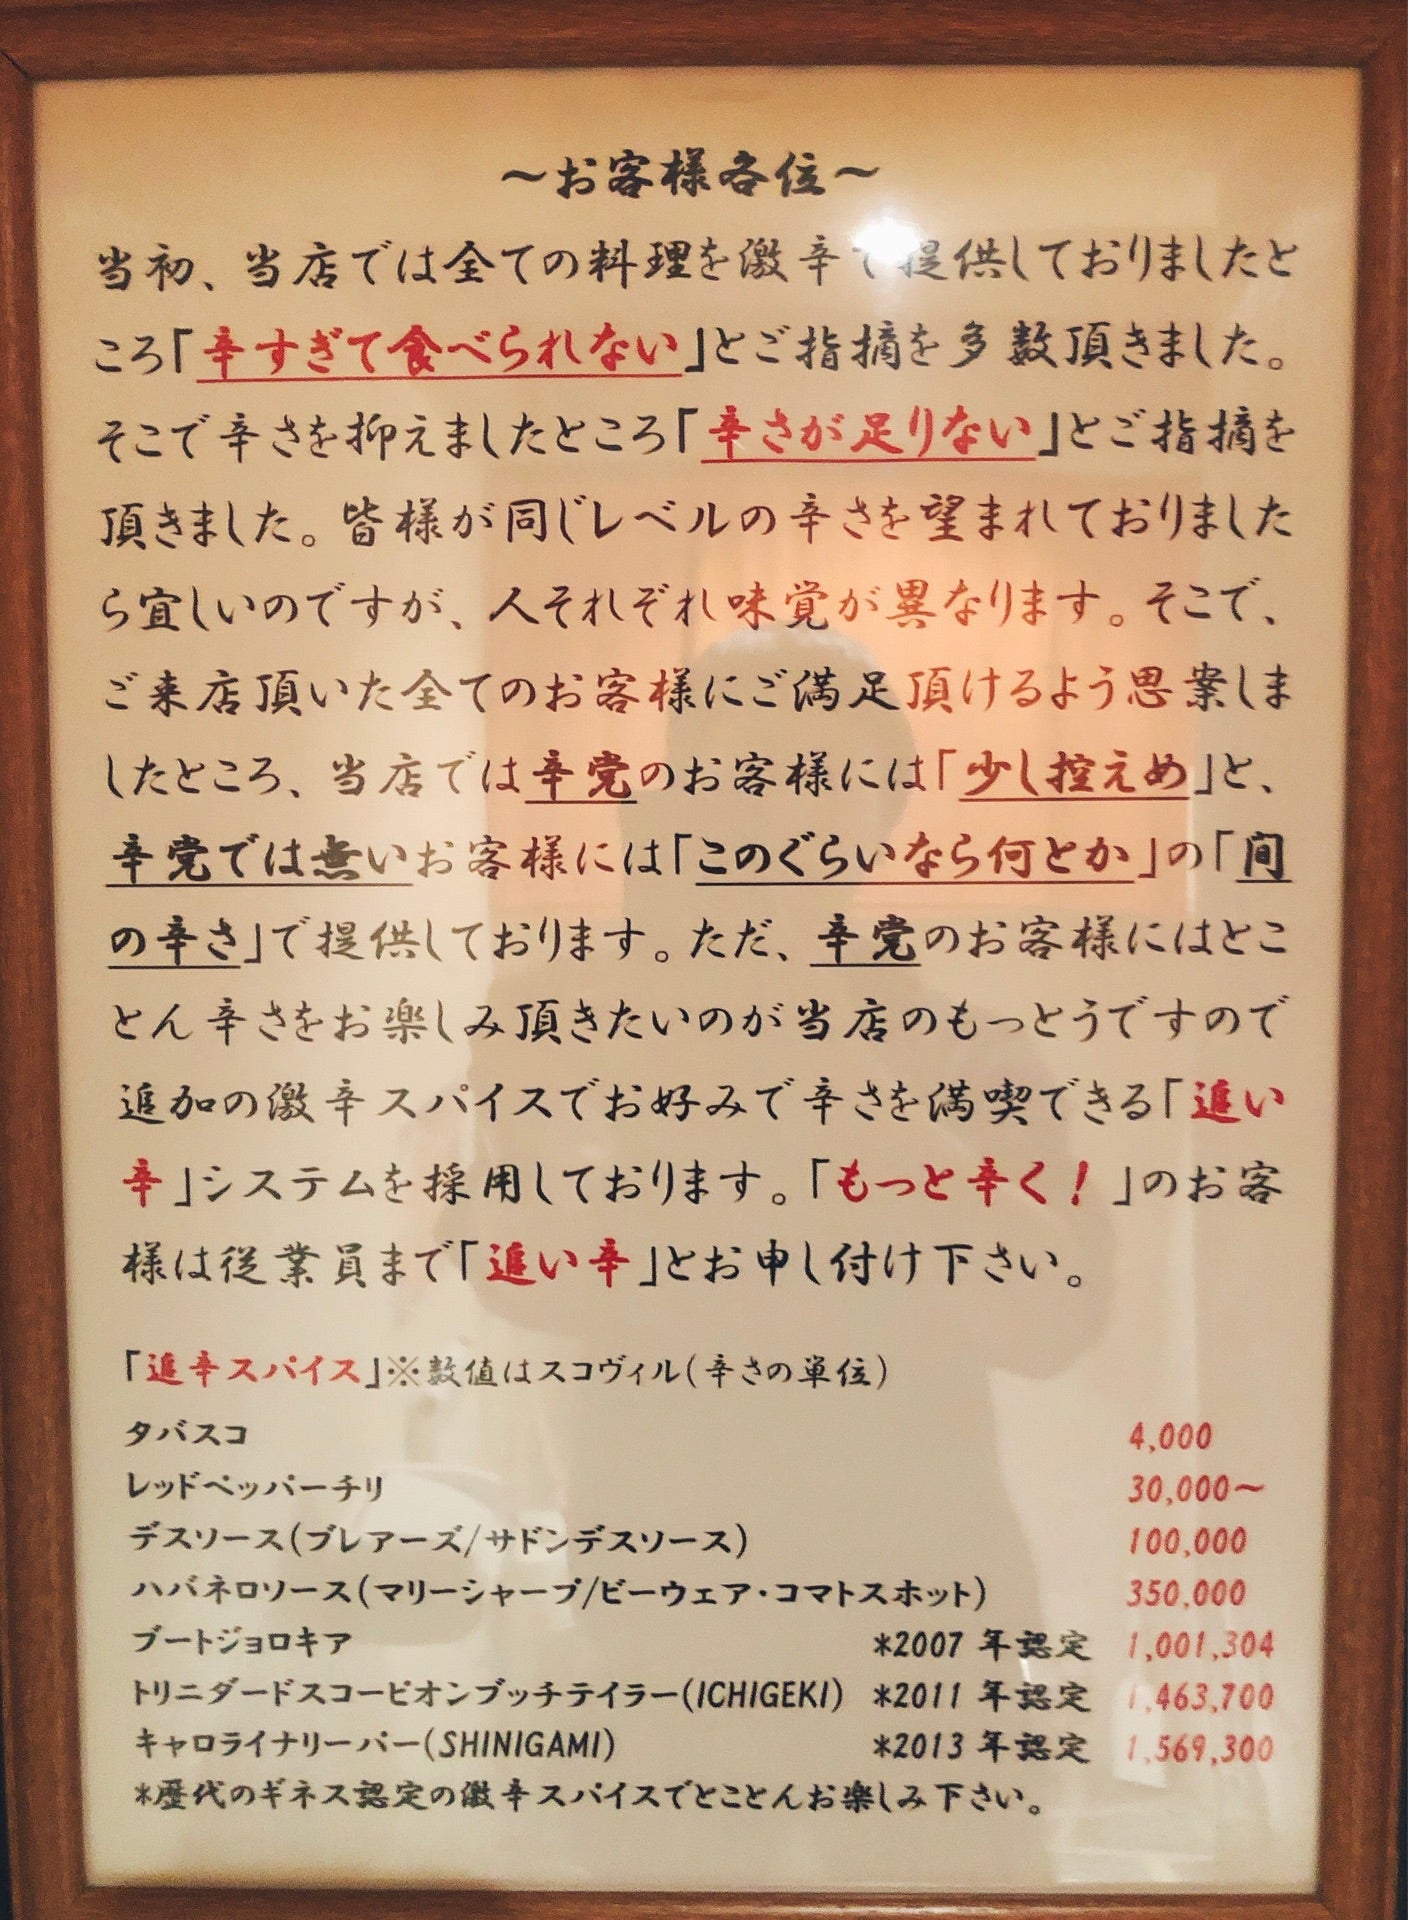 ～お客様各位～
当初、当店では全ての料理を激辛で提供しておりましたと
ころ「辛すぎて食べられない」とご指摘を多数頂きました。
そこで辛さを抑えましたところ「辛さが足りない」とご指摘を
頂きました。皆様が同じレベルの辛さを望まれておりました
ら宜しいのですが、人それぞれ味覚が異なります。そこで、
ご来店頂いた全てのお客様にご満足頂けるよう思案しま
したところ、当店では辛党のお客様には「少し控えめ」と、
辛党では無いお客様には「このぐらいなら何とか」の「間
の辛さ」で提供しております。ただ、辛党のお客様にはとこ
とん辛さをお楽しみ頂きたいのが当店のもっとうですので
追加の激辛スパイスでお好みで辛さを満喫できる「追い
辛」システムを採用しております。「もっと辛く！」のお客
様は従業員まで「追い辛」とお申し付け下さい。
「追辛スパイス」※数値はスコヴィル(辛さの単位)
タバスコ 4,000
レッドペッパーチリ 30,000～
デスソース(ブレアーズ/サドンデスソース) 100,000
ハバネロソース(マリーシャープ/ビーウェア・コマトスホット) 350,000
ブートジョロキア *2007年認定 1,001,304
トリニダードスコーピオンブッチテイラー(ICHIGEKI) *2011年認定 1,463,700
キャロライナリーパー(SHINIGAMI) *2013年認定 1,569,300
*歴代のギネス認定の激辛スパイスでとことんお楽しみ下さい。